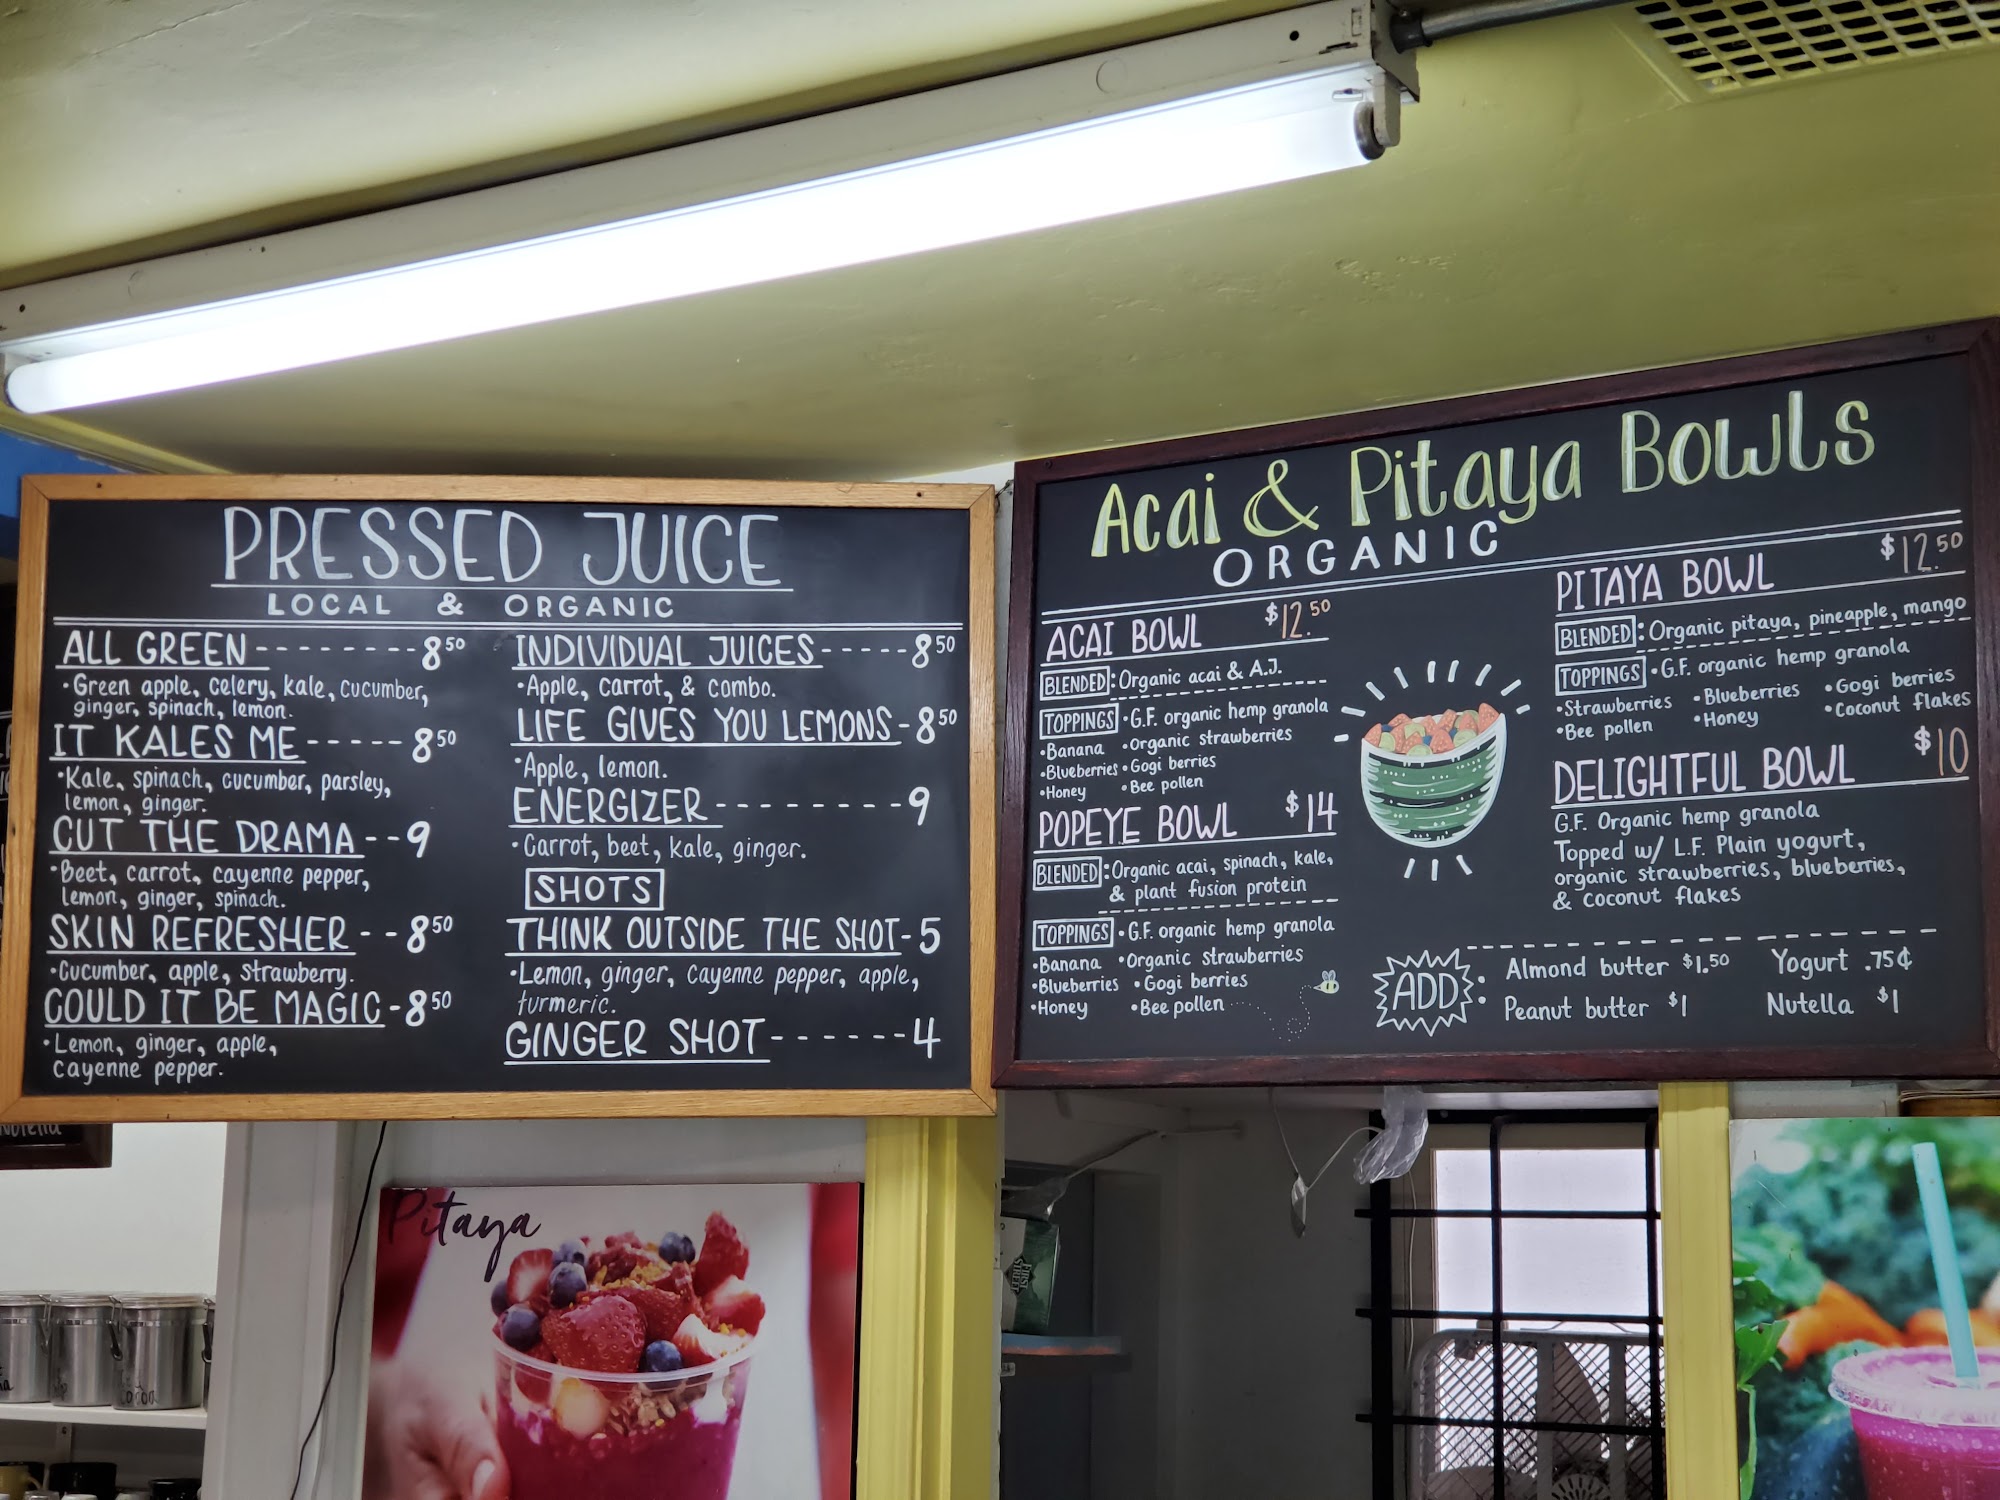 PRESSED JUICE
LOCAL & ORGANIC
ALL GREEN -------- 8 50
·Green apple, celery, kale, cucumber,
ginger, spinach, lemon.
IT KALES ME ----- 8 50
·Kale, spinach, cucumber, parsley,
lemon, ginger.
CUT THE DRAMA -- 9
·Beet, carrot, cayenne pepper,
lemon, ginger, spinach.
SKIN REFRESHER -- 8 50
·Cucumber, apple, strawberry.
COULD IT BE MAGIC - 8 50
·Lemon, ginger, apple,
cayenne pepper.
INDIVIDUAL JUICES ----- 8 50
·Apple, carrot, & combo.
LIFE GIVES YOU LEMONS - 8 50
·Apple, lemon.
ENERGIZER -------- 9
·Carrot, beet, kale, ginger.
SHOTS
THINK OUTSIDE THE SHOT - 5
·Lemon, ginger, cayenne pepper, apple,
turmeric.
GINGER SHOT ------ 4
Acai & Pitaya Bowls
ORGANIC
ACAI BOWL $12.50
BLENDED: Organic acai & A.J.
TOPPINGS ·G.F. organic hemp granola
·Banana ·Organic strawberries
·Blueberries ·Gogi berries
·Honey ·Bee pollen
POPEYE BOWL $14
BLENDED: Organic acai, spinach, kale,
& plant fusion protein
TOPPINGS ·G.F. organic hemp granola
·Banana ·Organic strawberries
·Blueberries ·Gogi berries
·Honey ·Bee pollen
PITAYA BOWL $12.50
BLENDED: Organic pitaya, pineapple, mango
TOPPINGS ·G.F. organic hemp granola
·Strawberries ·Blueberries ·Gogi berries
·Bee pollen ·Honey ·Coconut flakes
DELIGHTFUL BOWL $10
G.F. Organic hemp granola
Topped w/ L.F. Plain yogurt,
organic strawberries, blueberries,
& coconut flakes
ADD: Almond butter $1.50 Yogurt .75¢
Peanut butter $1 Nutella $1
Nutella
Pitaya
FIRST
STREET